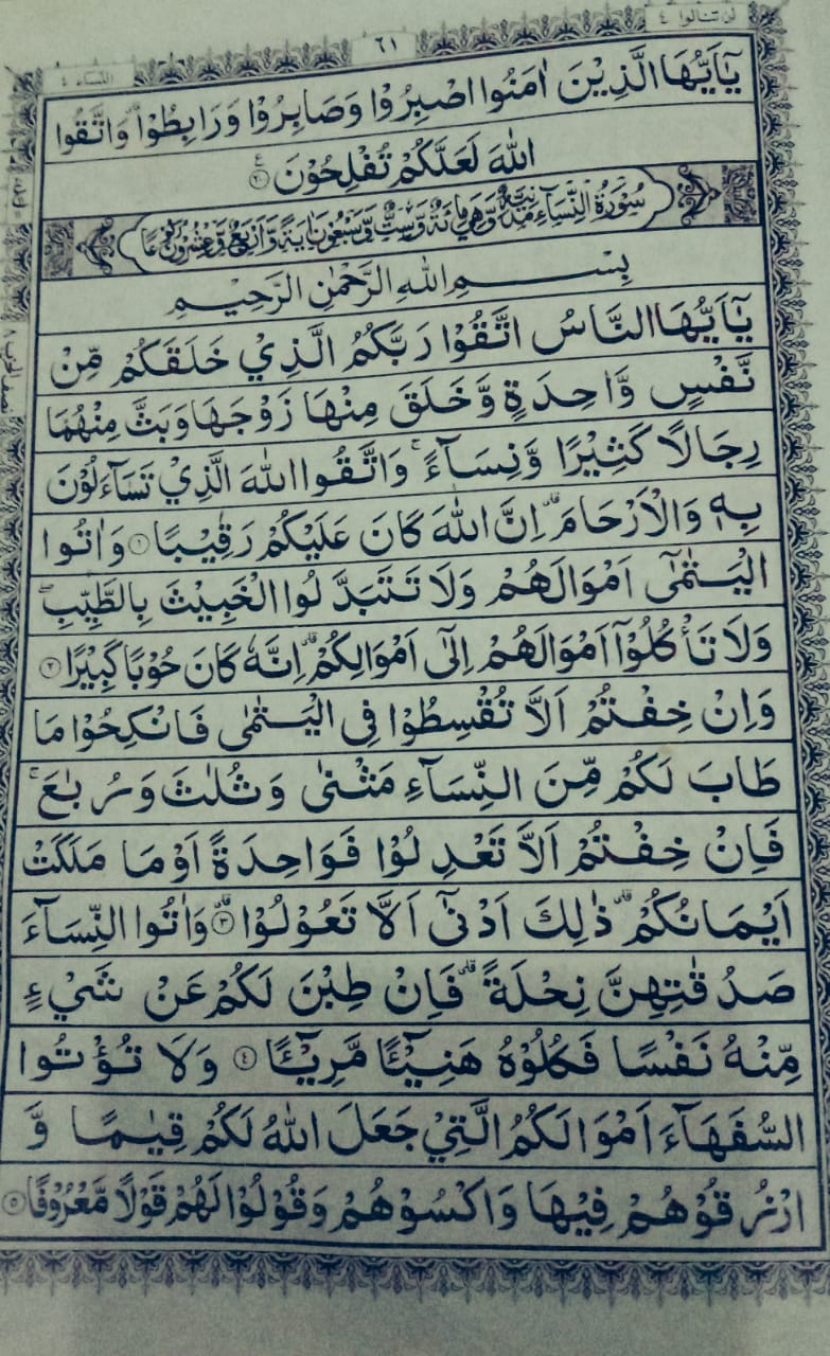 لن تنالوا ٤
٦١
النساء ٤
يٰٓاَيُّهَا الَّذِيْنَ اٰمَنُوا اصْبِرُوْا وَصَابِرُوْا وَرَابِطُوْا وَاتَّقُوا
اللّٰهَ لَعَلَّكُمْ تُفْلِحُوْنَ
سُوْرَةُ النِّسَآءِ مَدَنِيَّةٌ وَّهِيَ مِائَةٌ وَّسِتٌّ وَّسَبْعُوْنَ اٰيَةً وَّاَرْبَعٌ وَّعِشْرُوْنَ رُكُوْعًا
بِسْمِ اللّٰهِ الرَّحْمٰنِ الرَّحِيْمِ
يٰٓاَيُّهَا النَّاسُ اتَّقُوْا رَبَّكُمُ الَّذِيْ خَلَقَكُمْ مِّنْ
نَّفْسٍ وَّاحِدَةٍ وَّخَلَقَ مِنْهَا زَوْجَهَا وَبَثَّ مِنْهُمَا
رِجَالًا كَثِيْرًا وَّنِسَآءً ۚ وَاتَّقُوا اللّٰهَ الَّذِيْ تَسَآءَلُوْنَ
بِهٖ وَالْاَرْحَامَ ۗ اِنَّ اللّٰهَ كَانَ عَلَيْكُمْ رَقِيْبًا ۝١ وَاٰتُوا
الْيَتٰمٰٓى اَمْوَالَهُمْ وَلَا تَتَبَدَّلُوا الْخَبِيْثَ بِالطَّيِّبِ ۖ
وَلَا تَاْكُلُوْٓا اَمْوَالَهُمْ اِلٰٓى اَمْوَالِكُمْ ۗ اِنَّهٗ كَانَ حُوْبًا كَبِيْرًا ۝٢
وَاِنْ خِفْتُمْ اَلَّا تُقْسِطُوْا فِى الْيَتٰمٰى فَانْكِحُوْا مَا
طَابَ لَكُمْ مِّنَ النِّسَآءِ مَثْنٰى وَثُلٰثَ وَرُبٰعَ ۚ
فَاِنْ خِفْتُمْ اَلَّا تَعْدِلُوْا فَوَاحِدَةً اَوْ مَا مَلَكَتْ
اَيْمَانُكُمْ ۗ ذٰلِكَ اَدْنٰٓى اَلَّا تَعُوْلُوْا ۝٣ وَاٰتُوا النِّسَآءَ
صَدُقٰتِهِنَّ نِحْلَةً ۗ فَاِنْ طِبْنَ لَكُمْ عَنْ شَيْءٍ
مِّنْهُ نَفْسًا فَكُلُوْهُ هَنِيْٓـًٔا مَّرِيْٓـًٔا ۝٤ وَلَا تُؤْتُوا
السُّفَهَآءَ اَمْوَالَكُمُ الَّتِيْ جَعَلَ اللّٰهُ لَكُمْ قِيٰمًا وَّ
ارْزُقُوْهُمْ فِيْهَا وَاكْسُوْهُمْ وَقُوْلُوْا لَهُمْ قَوْلًا مَّعْرُوْفًا ۝٥